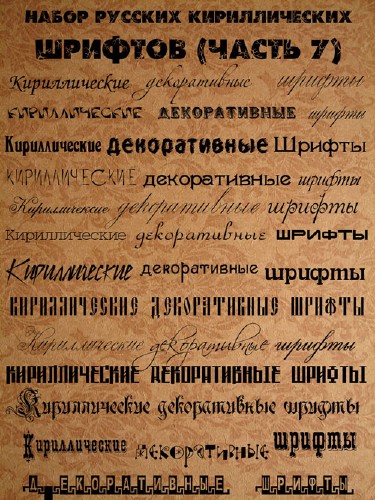 НАБОР РУССКИХ КИРИЛЛИЧЕСКИХ
ШРИФТОВ (ЧАСТЬ 7)
Кириллические декоративные шрифты
КИРИЛЛИЧЕСКИЕ ДЕКОРАТИВНЫЕ шрифты
Кириллические декоративные Шрифты
КИРИЛЛИЧЕСКИЕ декоративные шрифты
Кириллические декоративные шрифты
Кириллические декоративные ШРИФТЫ
Кириллические декоративные шрифты
КИРИЛЛИЧЕСКИЕ ДЕКОРАТИВНЫЕ ШРИФТЫ
Кириллические декоративные шрифты
КИРИЛЛИЧЕСКИЕ ДЕКОРАТИВНЫЕ ШРИФТЫ
Кириллические декоративные шрифты
Кириллические декоративные шрифты
ДЕКОРАТИВНЫЕ ШРИФТЫ